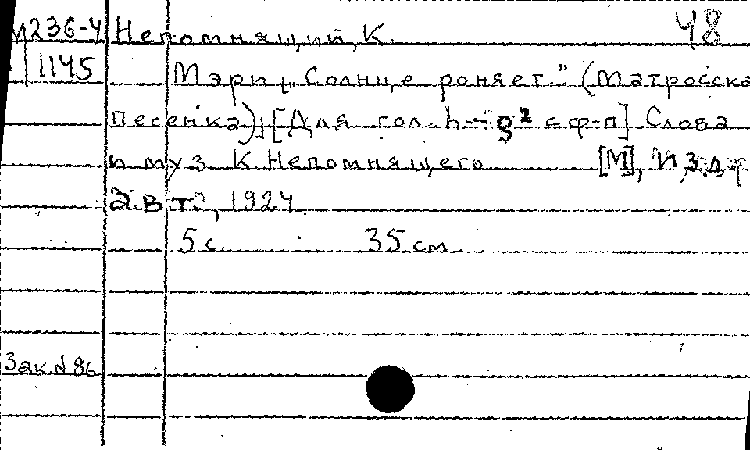 М236-4 Непомнящий, К. 48
1145 Мэри „Солнце роняет." (Матросска
песенка) [Для гол. h-g² с ф-п] Слова
и муз К. Непомнящего [М], Изд
авт., 1924
5 с 35 см.
Зак. N 86